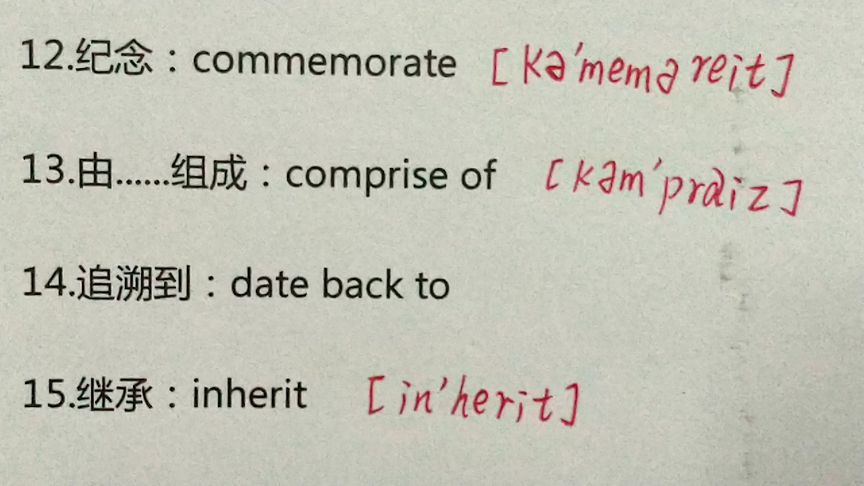 12.纪念：commemorate [kə'meməreit]
13.由......组成：comprise of [kəm'praiz]
14.追溯到：date back to
15.继承：inherit [in'herit]